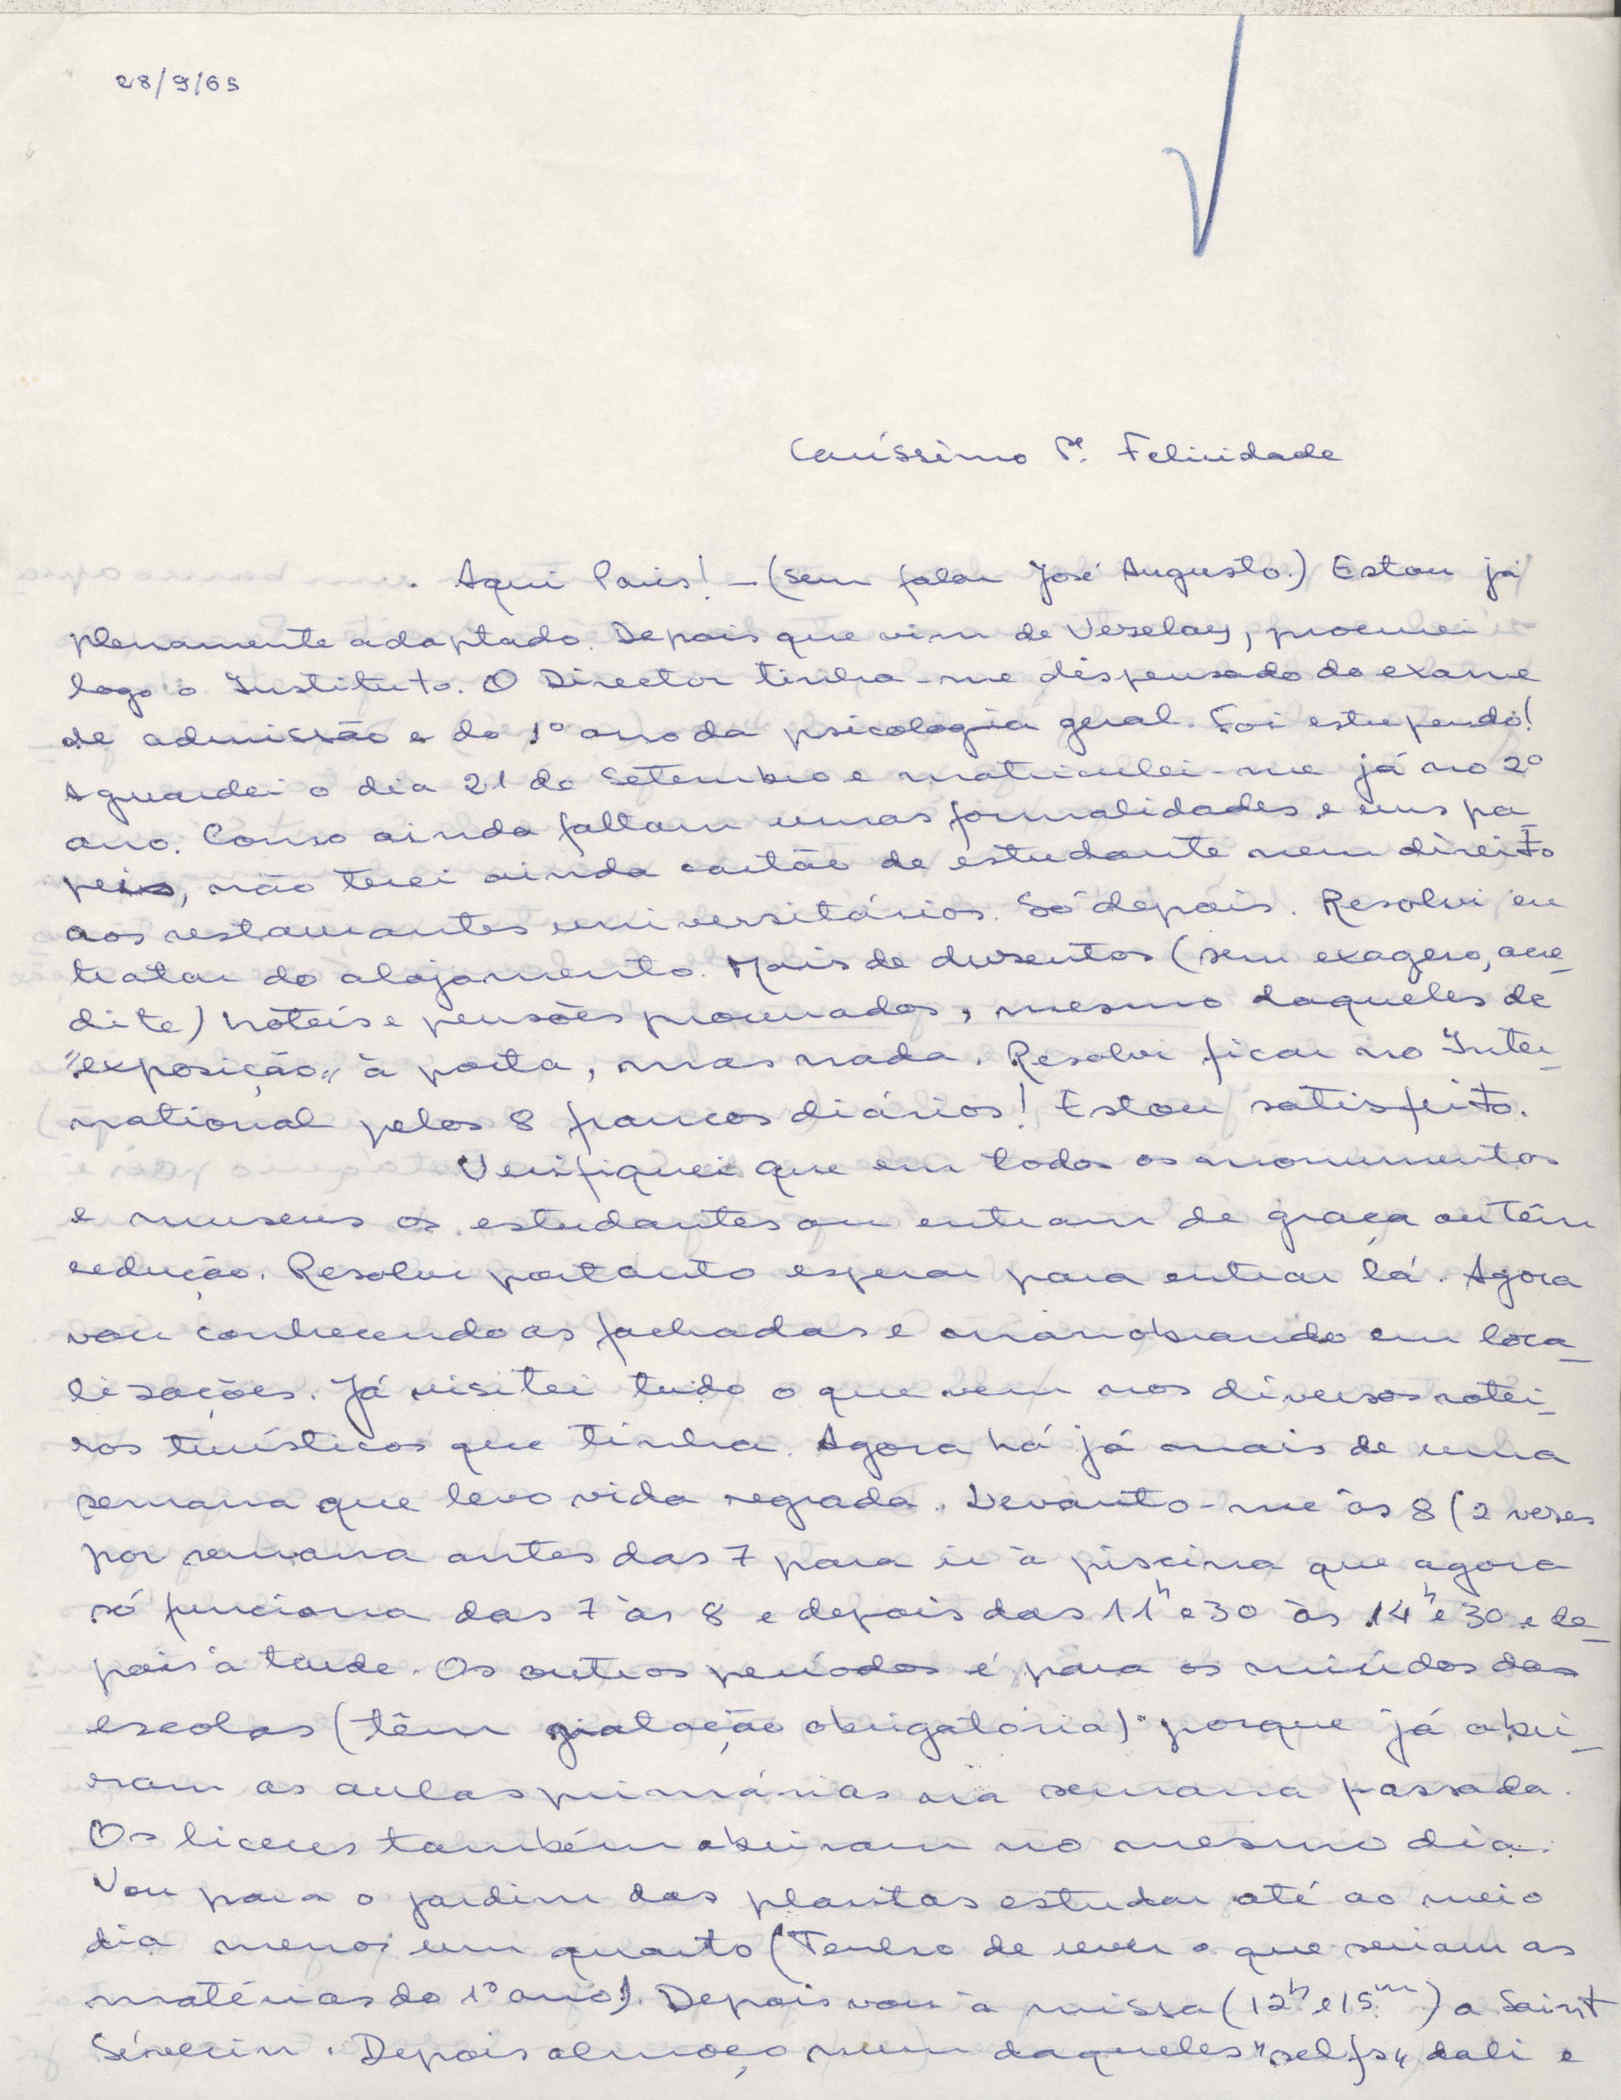 28/9/65
Caríssimo Pe. Felicidade
. Aqui Paris! - (sem falar José Augusto.) Estou já
plenamente adaptado. Depois que vim de Veselay, procurei
logo o Instituto. O Director tinha-me dispensado do exame
de admissão e do 1º ano da psicologia geral. Foi estupendo!
Aguardei o dia 21 de Setembro e matriculei-me já no 2º
ano. Como ainda faltam umas formalidades e uns pa-
peis, não terei ainda cartão de estudante nem direito
aos restaurantes universitários. Só depois. Resolvi eu
tratar do alojamento. Mais de dusentos (sem exagero, acre-
dite) hóteis e pensões procurados, mesmo daqueles de
"exposição" à porta, mas nada. Resolvi ficar no Inter-
national pelos 8 francos diários! Estou satisfeito.
Verifiquei que em todos os monumentos
e museus os estudantes ou entram de graça ou têm
redução. Resolvi portanto esperar para entrar lá. Agora
vou conhecendo as fachadas e manobrando em loca-
lisações. Já visitei tudo o que vem nos diversos rotei-
ros turísticos que tinha. Agora há já mais de uma
semana que levo vida regrada. Levanto-me às 8 (2 veses
por semana antes das 7 para ir à piscina que agora
só funciona das 7 às 8 e depois das 11h e 30 às 14h e 30 e de-
pois à tarde. Os outros períodos é para os miúdos das
escolas (têm natação obrigatória) porque já abri-
ram as aulas primárias na semana passada.
Os liceus também abriram no mesmo dia.
Vou para o jardim das plantas estudar até ao meio
dia menos um quarto (Tenho de rever o que seriam as
matérias do 1º ano). Depois vou à missa (12h e 15m) a Saint
Séverin. Depois almoço num daqueles "selfs" dali e